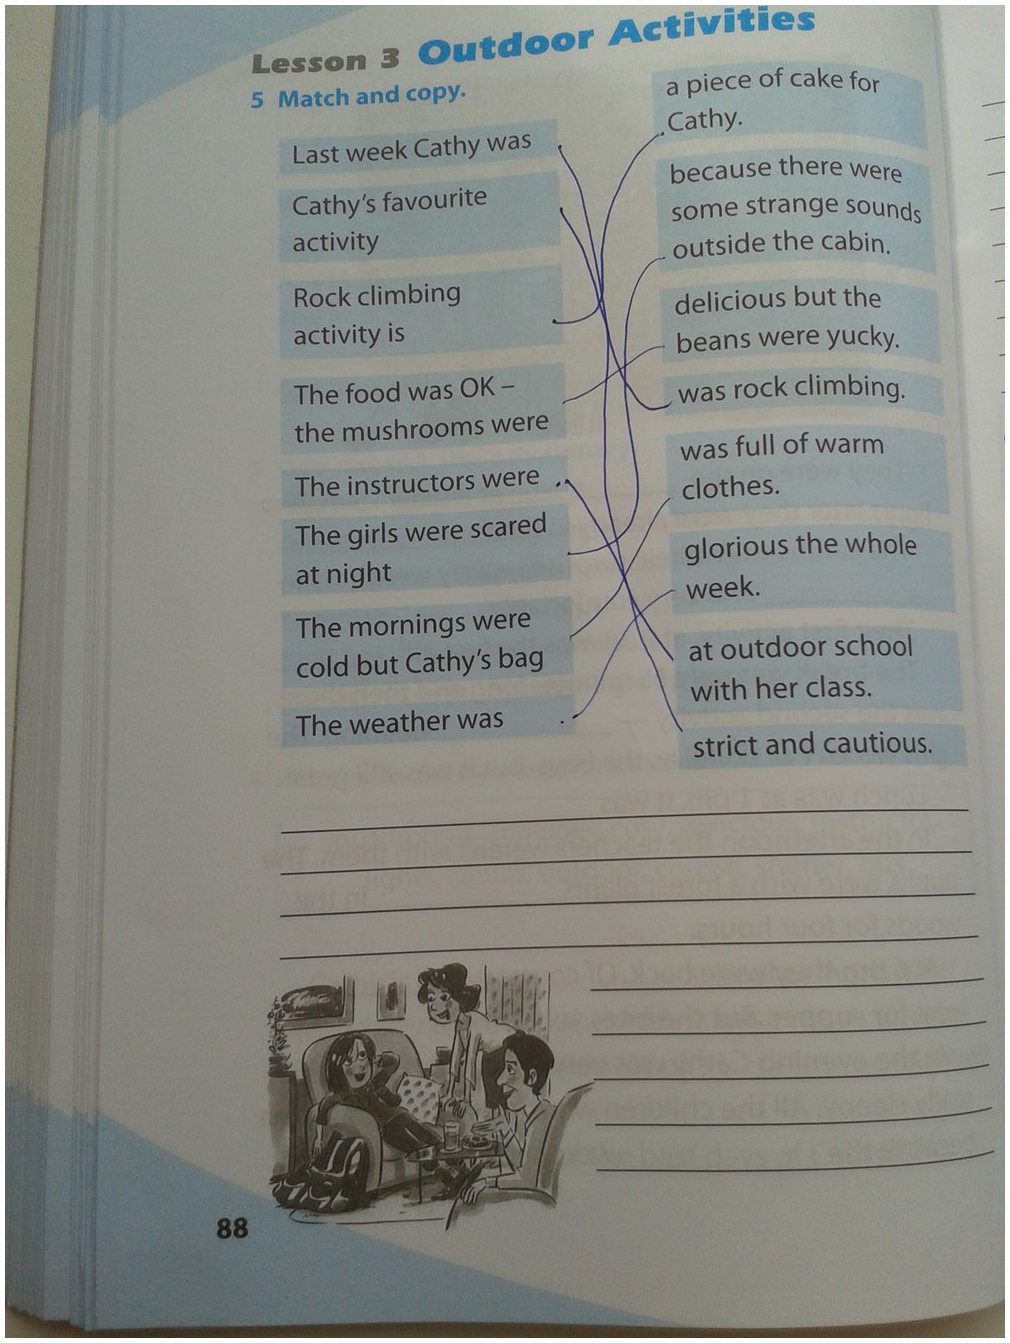 Lesson 3 Outdoor Activities
5 Match and copy.
Last week Cathy was
Cathy's favourite
activity
Rock climbing
activity is
The food was OK –
the mushrooms were
The instructors were
The girls were scared
at night
The mornings were
cold but Cathy's bag
The weather was
a piece of cake for
Cathy.
because there were
some strange sounds
outside the cabin.
delicious but the
beans were yucky.
was rock climbing.
was full of warm
clothes.
glorious the whole
week.
at outdoor school
with her class.
strict and cautious.
88